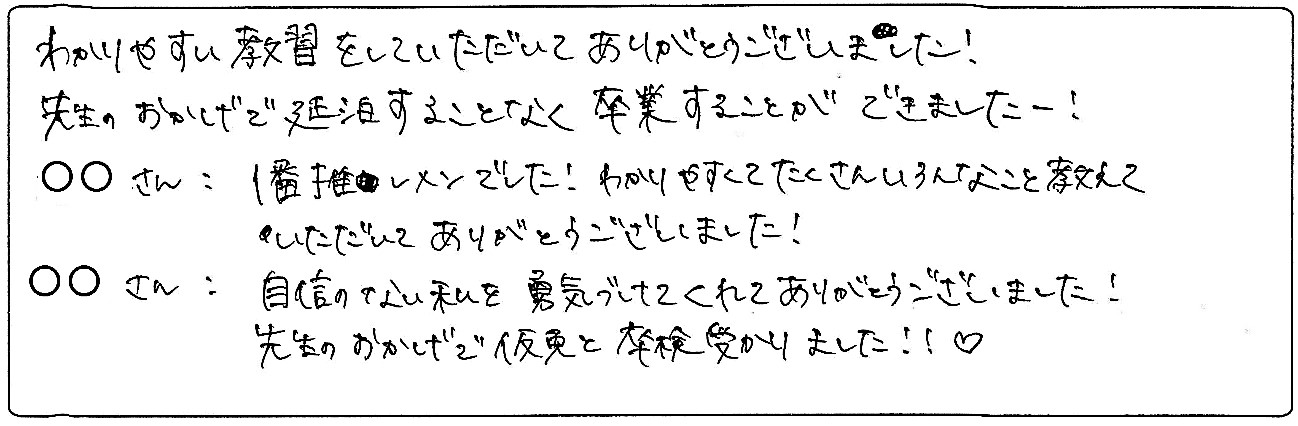 わかりやすい教習をしていただいてありがとうございました!
先生のおかげで延泊することなく卒業することができましたー!
〇〇さん: 1番推しメンでした!わかりやすくてたくさんいろんなこと教えて
いただいてありがとうございました!
〇〇さん: 自信のない私を勇気づけてくれてありがとうございました!
先生のおかげで仮免と卒検受かりました!!♡